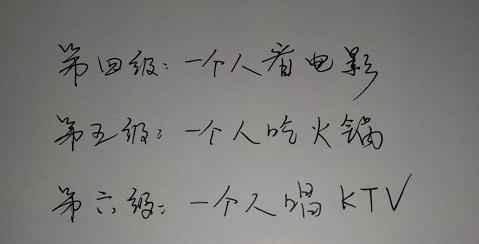 第四级：一个人看电影
第五级：一个人吃火锅
第六级：一个人唱KTV